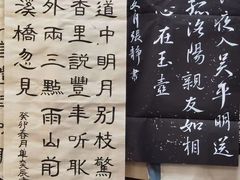 入吴平明送
洛陽親友如相
心在玉壺
月張靜書
道中明月别枝驚
香里説豐年听取
外兩三點雨山前
溪橋忽見
癸卯春月